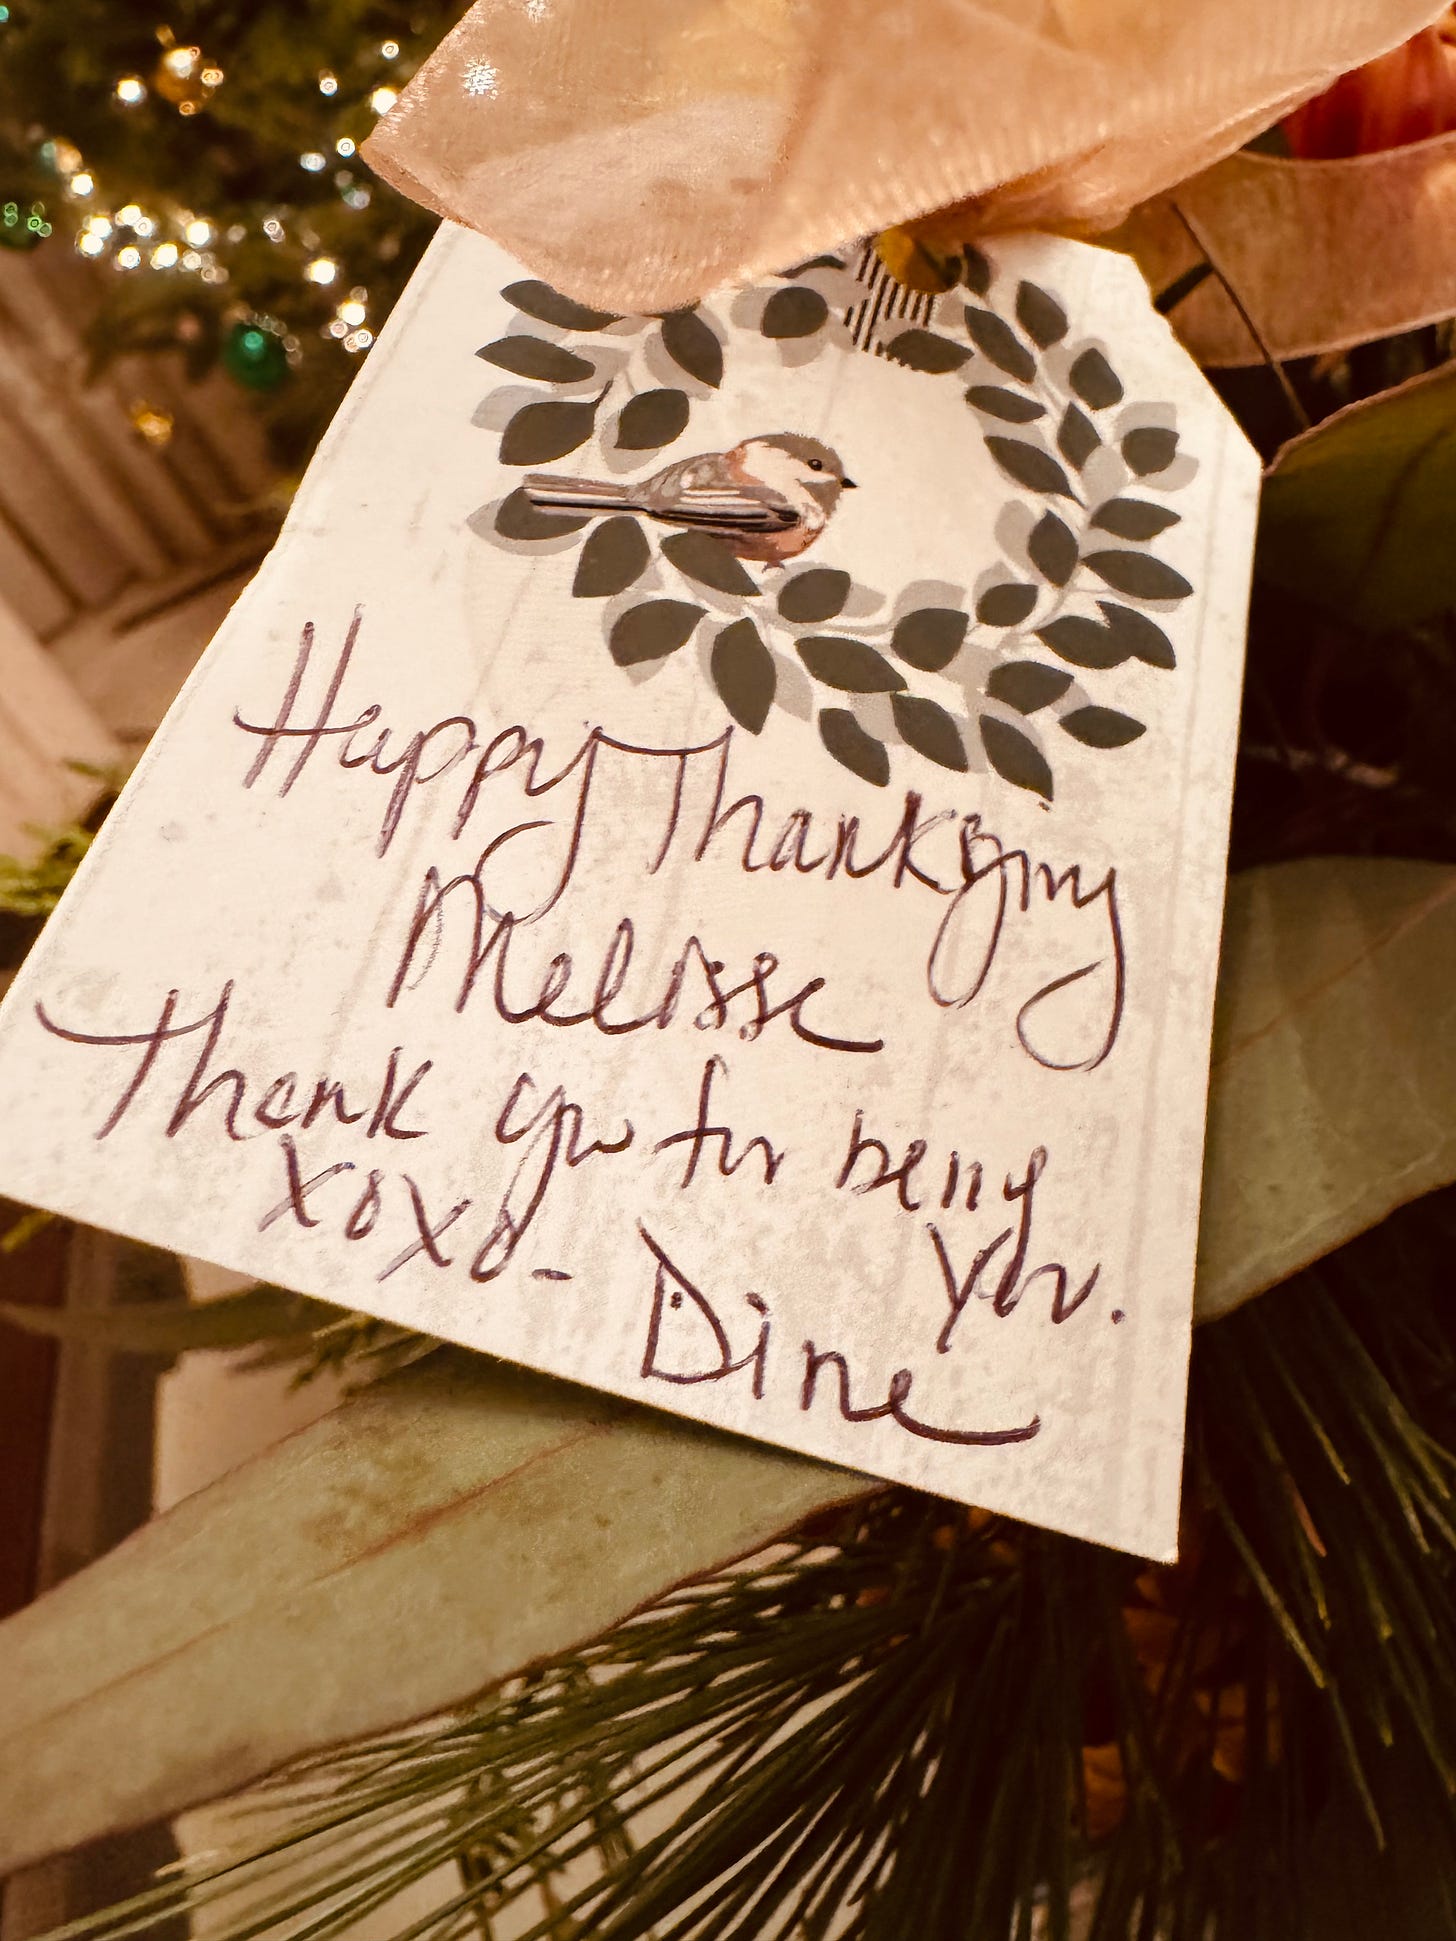 Happy Thanksgiving
Melisse
Thank you for being
xoxo- you.
Dine